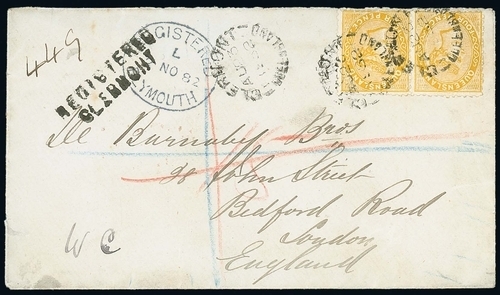 449
REGISTERED
CLERMONT
REGISTERED
L
NO 82
PLYMOUTH
CLERMONT
QUEENSLAND
De Barnaby Bros
28 John Street
Bedford Road
London
England
W C